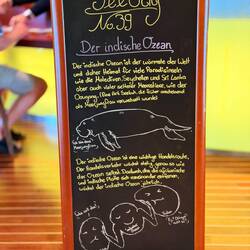 Seetag
No.39
Der indische Ozean
Der indische Ozean ist der wärmste der Welt
und daher Heimat für viele Paradiesinseln
wie die Malediven, Seychellen und Sri Lanka
aber auch vieler seltener Meerestiere, wie der
Dugong. (Eine Art Seekuh, die früher anscheinend
als Meerjungfrau verwechselt wurde)
Ich bin doch
Der indische Ozean ist eine wichtige Handelsroute.
Der Handelsverkehr wächst stetig, genau so wie
der Ozean selbst. Dadurch, das die afrikanische
und indische Platte sich voneinander entfernen,
wächst der indische Ozean jährlich.